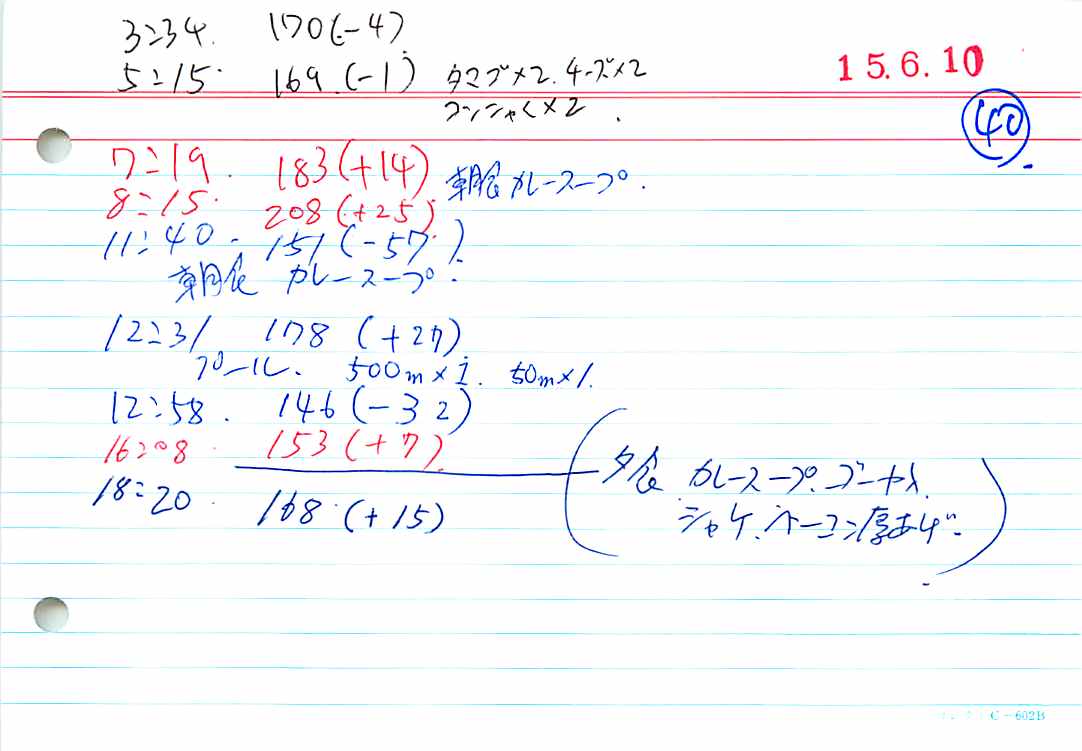 3:34. 170(-4)
5:15. 169.(-1) タマゴ×2.チーズ×2
コンシャく×2.
15.6.10
40
7:19. 183(+14)
朝食 カレースープ.
8:15. 208(+25)
11:40. 151(-57.)
朝食 カレースープ.
12:31 178 (+27)
プール. 500m×1. 50m×1.
12:58. 146(-32)
16:08 153(+7)
夕食 カレースープ.ゴーヤ
18:20. 168.(+15)
シャケ.ベーコン厚あげ.
C-602B